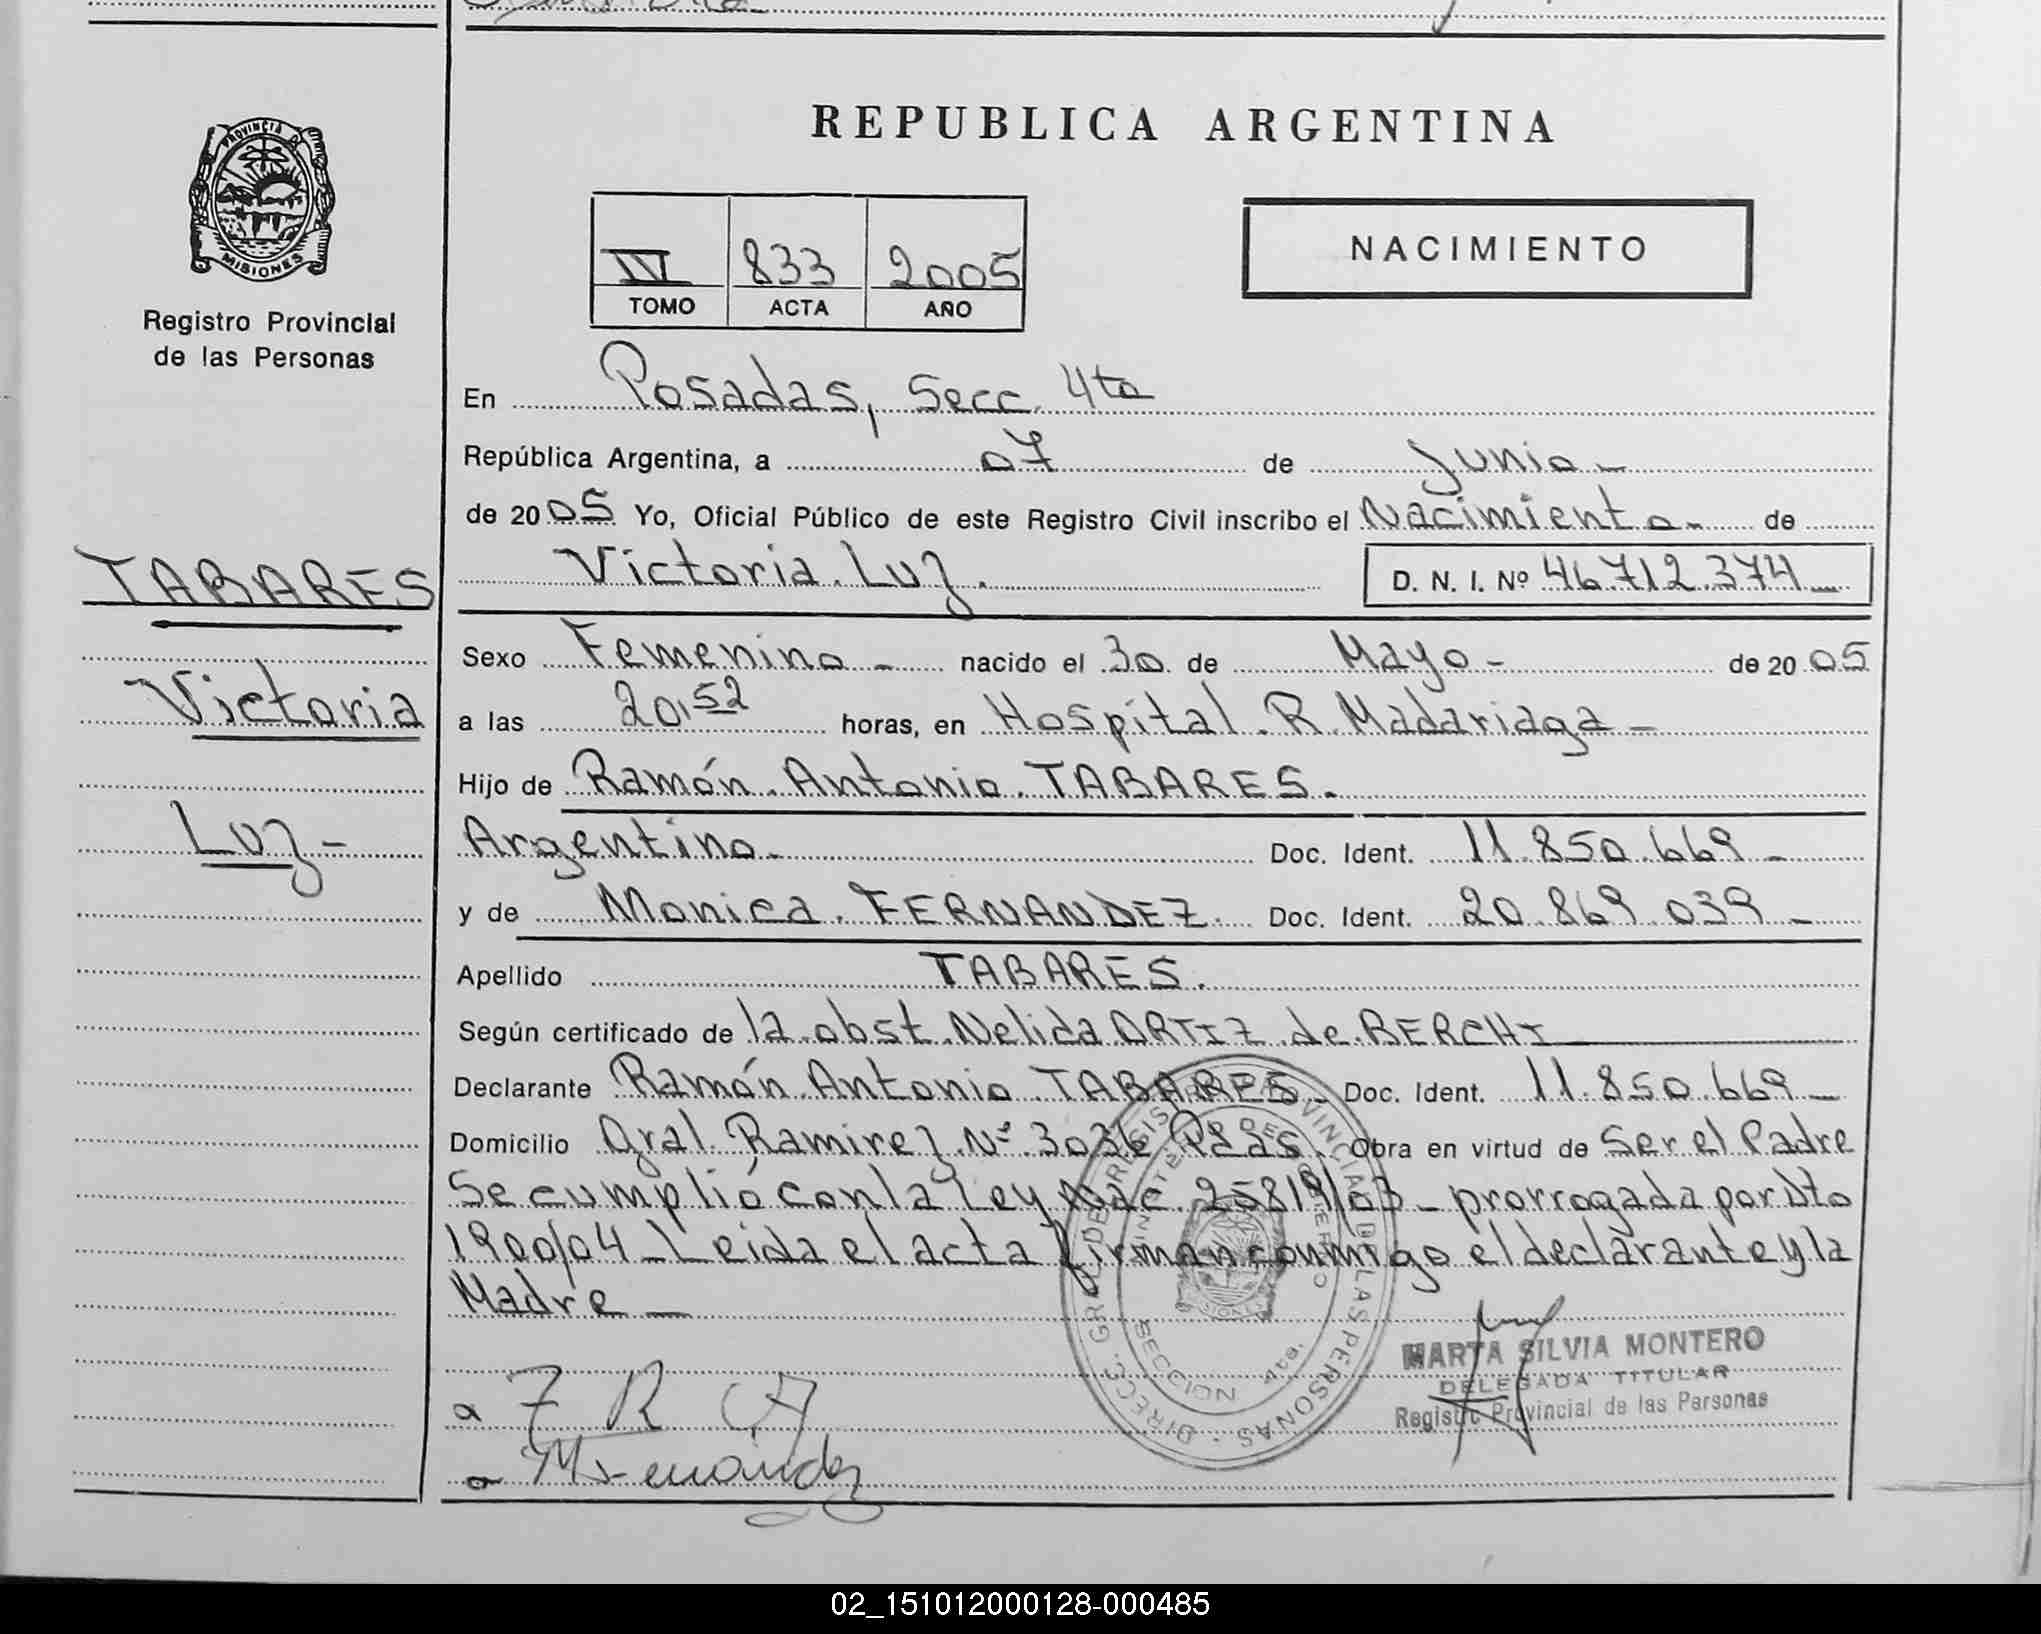 REPUBLICA ARGENTINA
PROVINCIA DE
MISIONES
Registro Provincial
de las Personas
IV 833 2005
TOMO ACTA AÑO
NACIMIENTO
En Posadas, Secc. 4ta
República Argentina, a 07 de Junio -
de 2005 Yo, Oficial Público de este Registro Civil inscribo el Nacimiento - de
Victoria Luz. D. N. I. Nº 46.712.374
TABARES
Victoria
Luz -
Sexo Femenino - nacido el 30 de Mayo - de 2005
a las 20,52 horas, en Hospital R. Madariaga -
Hijo de Ramón Antonio TABARES.
Argentino - Doc. Ident. 11.850.669 -
y de Monica FERNANDEZ. Doc. Ident. 20.869.039 -
Apellido TABARES.
Según certificado de la obst. Nelida ORTIZ de BERCHI
Declarante Ramón Antonio TABARES - Doc. Ident. 11.850.669 -
Domicilio Gral. Ramirez Nº 3036 Pdas. Obra en virtud de Ser el Padre
Se cumplió con la Ley Nac. 25819/03 - prorrogada por Dto
1900/04 - Leida el acta firman conmigo el declarante y la
Madre -
DIREC. GRAL. DEL REGISTRO PROVINCIAL DE LAS PERSONAS
MINISTERIO DE GOBIERNO
MISIONES
SECCION 4ta.
MARTA SILVIA MONTERO
DELEGADA TITULAR
Registro Provincial de las Personas
02_151012000128-000485